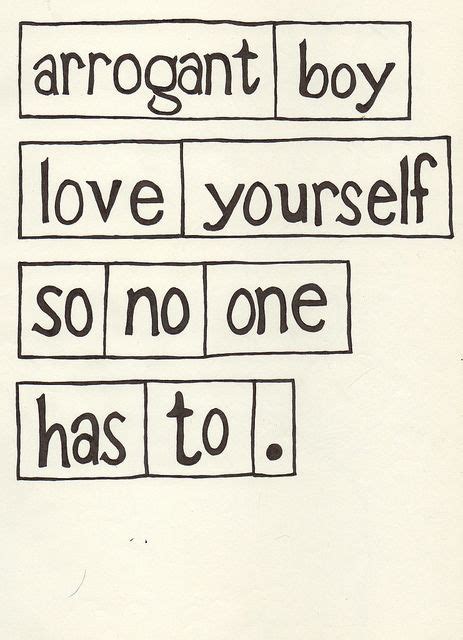 arrogant boy
love yourself
so no one
has to.